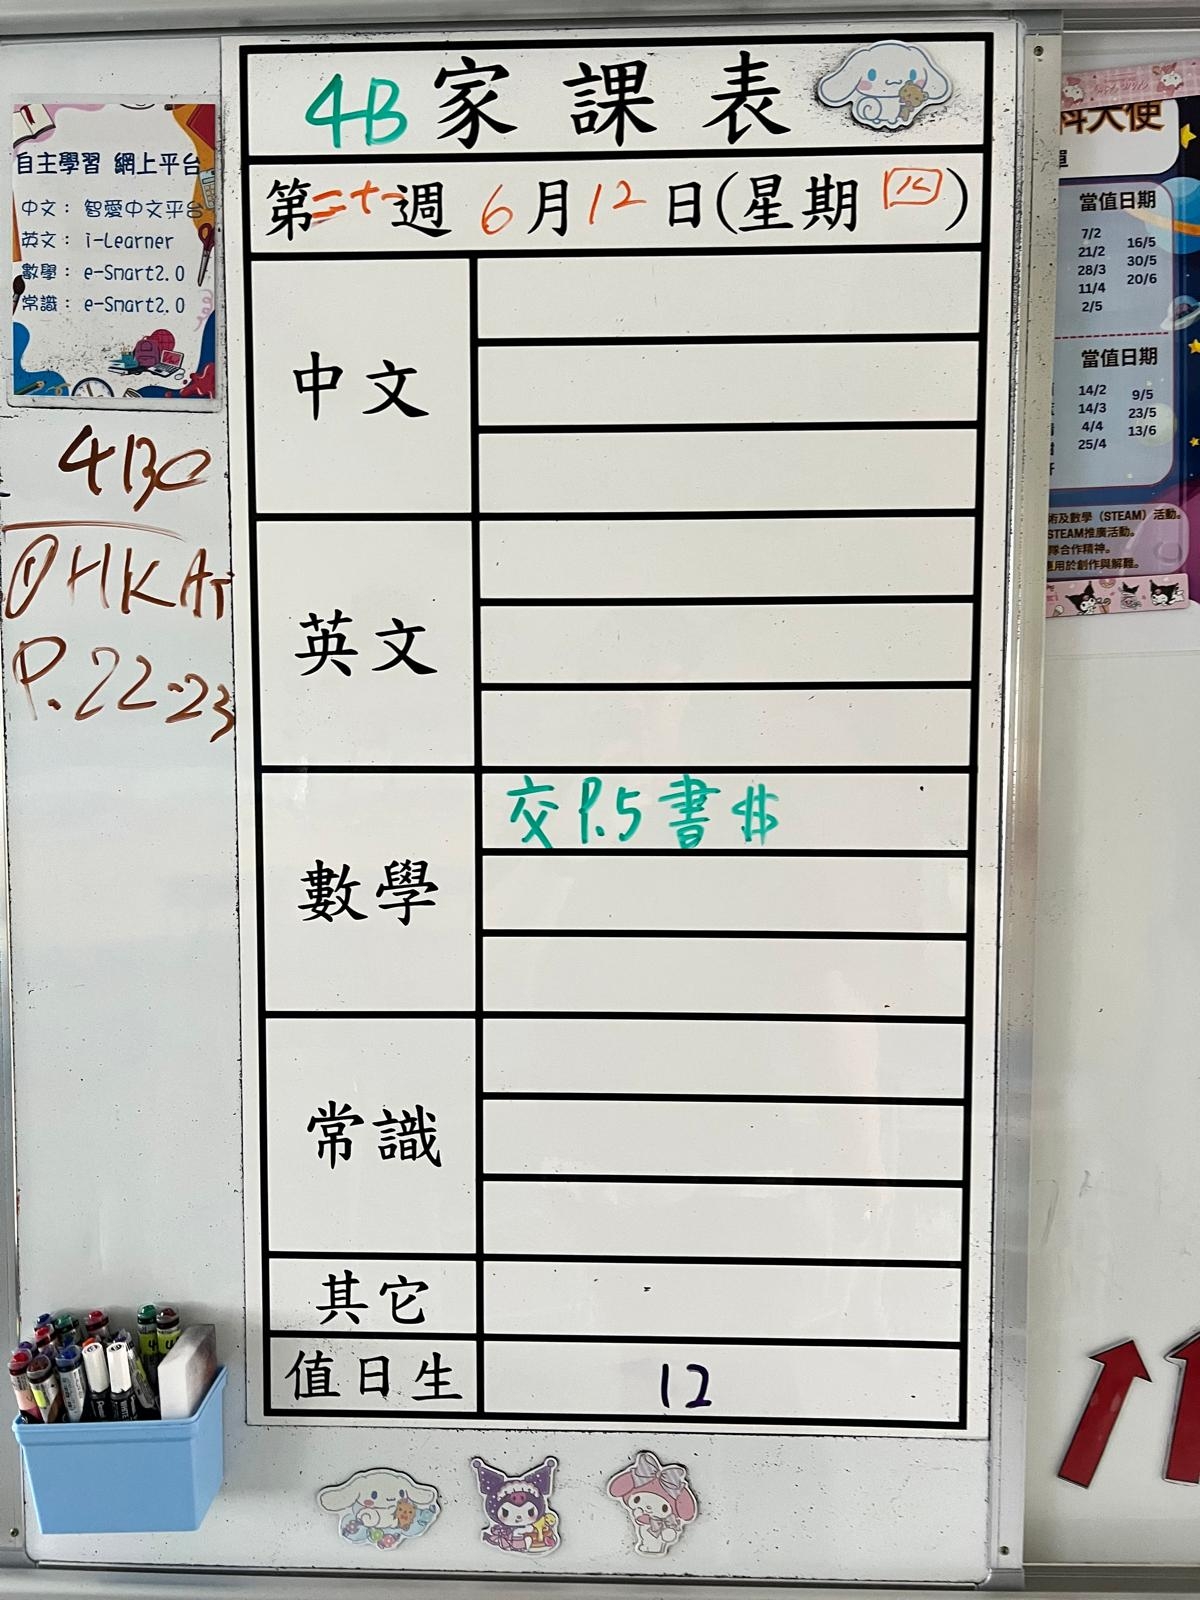 4B 家課表
第二十週 6月12日(星期四)
中文
英文
數學
交 P.5 書 $
常識
其它
值日生
12
自主學習 網上平台
中文： 智愛中文平台
英文： i-Learner
數學： e-Smart2.0
常識： e-Smart2.0
4BC
① HK At
P.22-23
科大使
當值日期
7/2
21/2
28/3
11/4
2/5
16/5
30/5
20/6
當值日期
14/2
14/3
4/4
25/4
9/5
23/5
13/6
術及數學（STEAM）活動。
STEAM推廣活動。
隊合作精神。
應用於創作與解難。